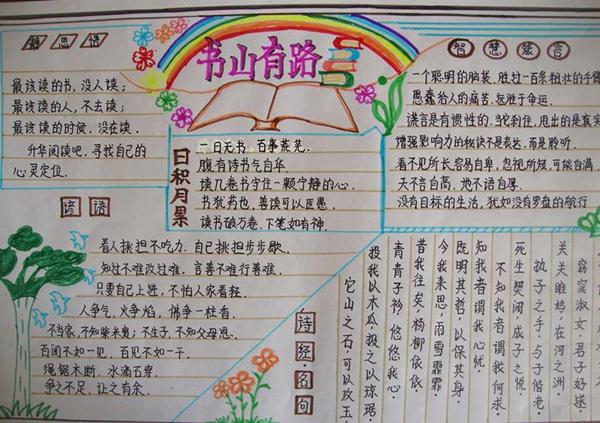 书山有路
思语
最该读的书，没人读；
最该读的人，不去读；
最该读的时候，没在读．
升华阅读吧，寻找自己的
心灵定位．
日积月累
一日无书 百事荒芜．
腹有诗书气自华．
读几卷书守住一颗宁静的心．
书犹药也，善读可以医愚．
读书破万卷，下笔如有神．
智慧箴言
一个聪明的脑袋，胜过一百条粗壮的手臂
愚蠢给人的痛苦，远胜于命运．
谎言是有惯性的，当刹住，甩出的是真实
增强影响力的秘诀不是表达，而是聆听．
看不见所长容易自卑，忽视所短，可能自满．
天不言自高，地不语自厚．
没有目标的生活，犹如没有罗盘的航行
谚语
看人挑担不吃力，自己挑担步步歇．
知过不难改过难，言善不难行善难．
只要自己上进，不怕人家看轻．
人争气，火争焰，佛争一柱香．
不当家，不知柴米贵；不生子，不知父母恩．
百闻不如一见，百见不如一干．
绳锯木断，水滴石穿．
争之不足，让之有余．
诗经·名句
窈窕淑女，君子好逑．
关关雎鸠，在河之洲．
执子之手，与子偕老．
死生契阔，成子之悦．
不知我者谓我何求．
知我者谓我心忧，
既明其哲，以保其身．
今我来思，雨雪霏霏．
昔我往矣，杨柳依依
青青子衿，悠悠我心．
投我以木瓜，报之以琼琚．
它山之石，可以攻玉．